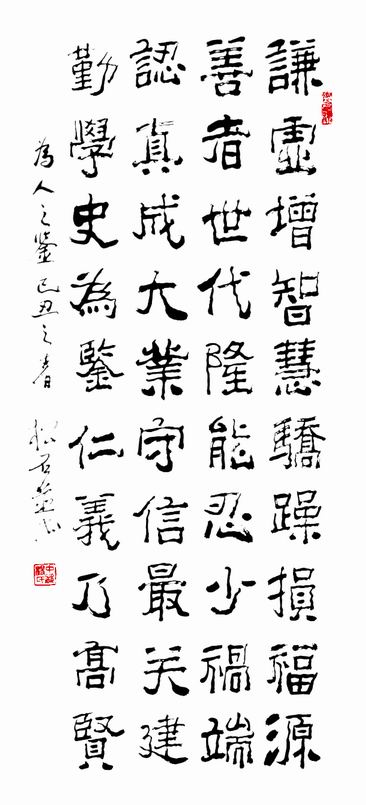 謙虛增智慧驕躁損福源
善者世代隆能忍少禍端
認真成大業守信最关建
勤學史為鑒仁義乃髙賢
為人之鑒己丑之春